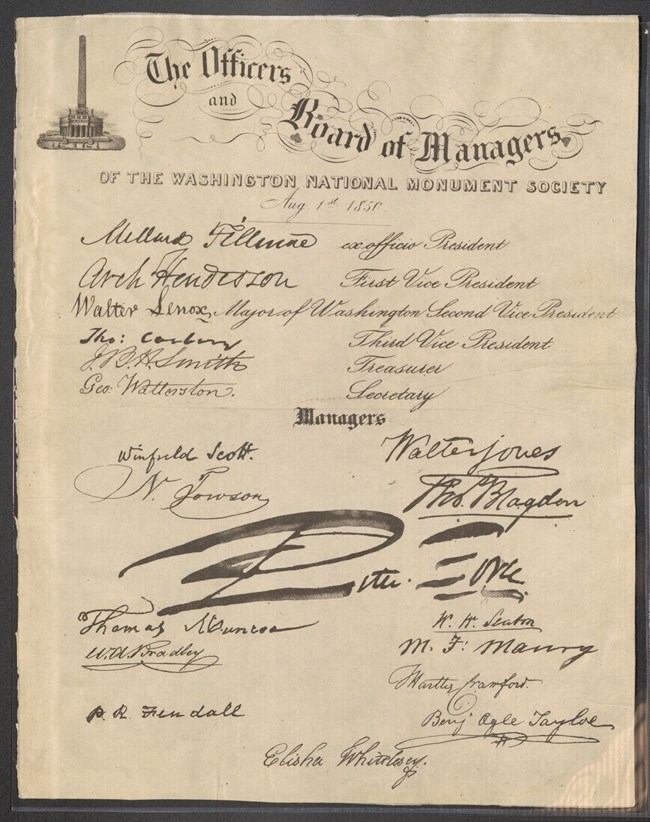 The Officers
and
Board of Managers
OF THE WASHINGTON NATIONAL MONUMENT SOCIETY
Aug 1st 1850.
Millard Fillmore ex officio President
Arch Henderson First Vice President
Walter Lenox, Major of Washington Second Vice President
Tho: Carbery Third Vice President
J.B.H. Smith Treasurer
Geo: Watterston. Secretary
Managers
Winfield Scott. Walter Jones
N. Towson Tho. Blagden
Peter Force
Thomas Munroe W. W. Seaton
W.A. Bradley M. F. Maury
Crawford.
P. R. Fendall Benj Ogle Tayloe
Elisha Whittlesey.